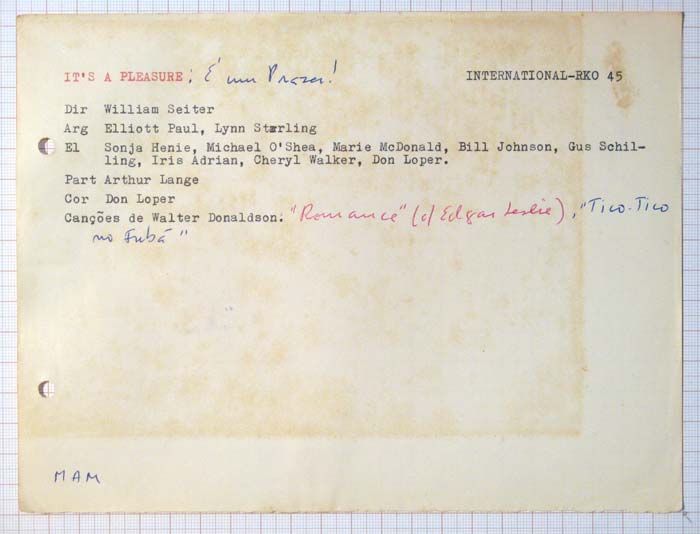 IT'S A PLEASURE: É um Prazer! INTERNATIONAL-RKO 45
Dir William Seiter
Arg Elliott Paul, Lynn Starling
El Sonja Henie, Michael O'Shea, Marie McDonald, Bill Johnson, Gus Schil-
ling, Iris Adrian, Cheryl Walker, Don Loper.
Part Arthur Lange
Cor Don Loper
Canções de Walter Donaldson: "Romance" (c/ Edgar Leslie), "Tico-Tico
no Fubá"
MAM